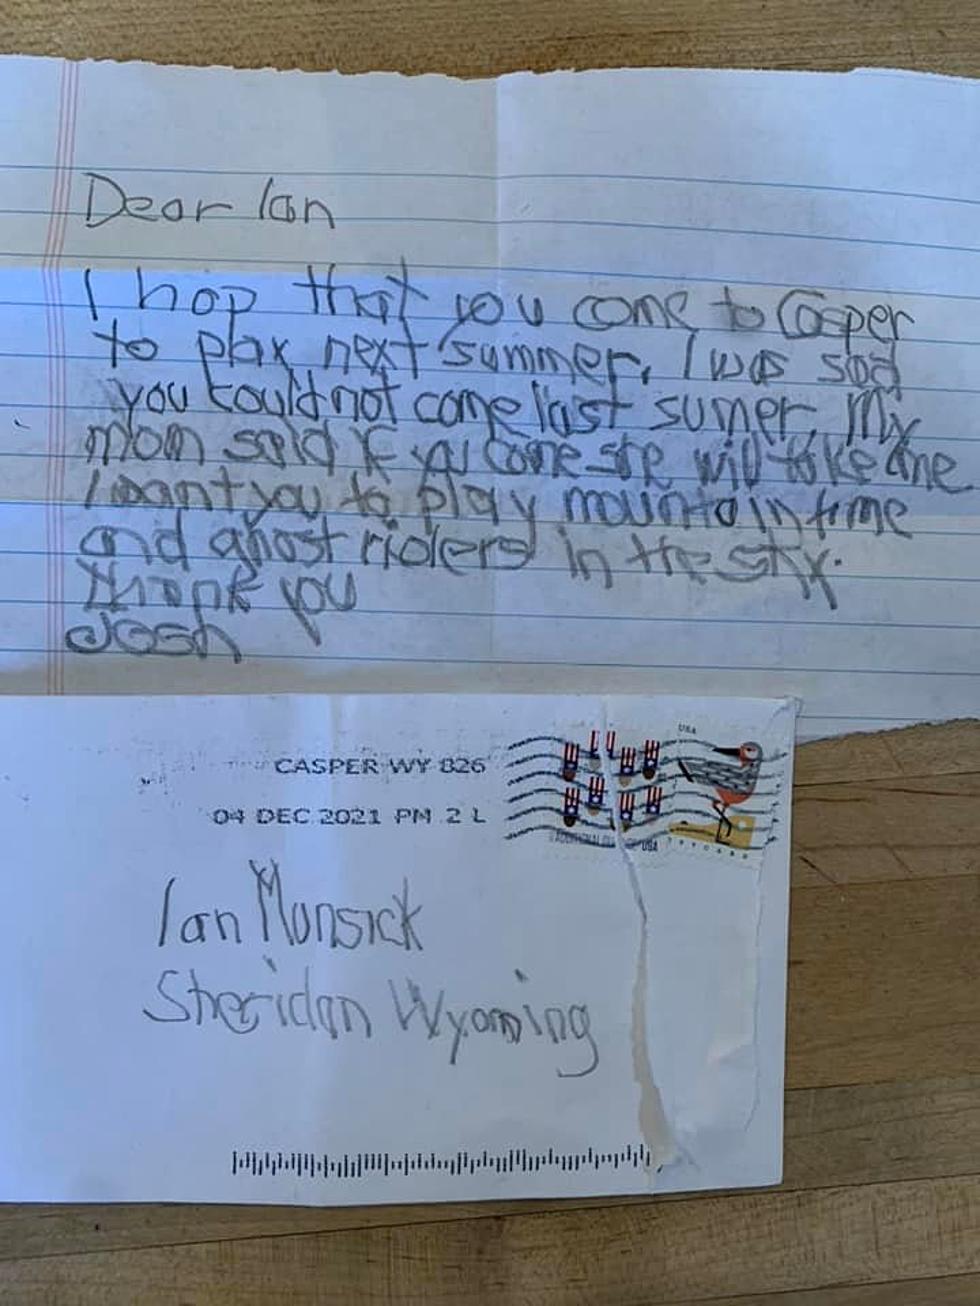 Dear Ian
I hop that you come to Casper
to play next summer. I was sad
you couldnot come last sumer. My
mom said if you come she will take me
I want you to play mountain time
and ghost riders in the sky.
Thank you
Josh
CASPER WY 826
04 DEC 2021 PM 2 L
USA
ADDITIONAL USA
Ian Munsick
Sheridan Wyoming